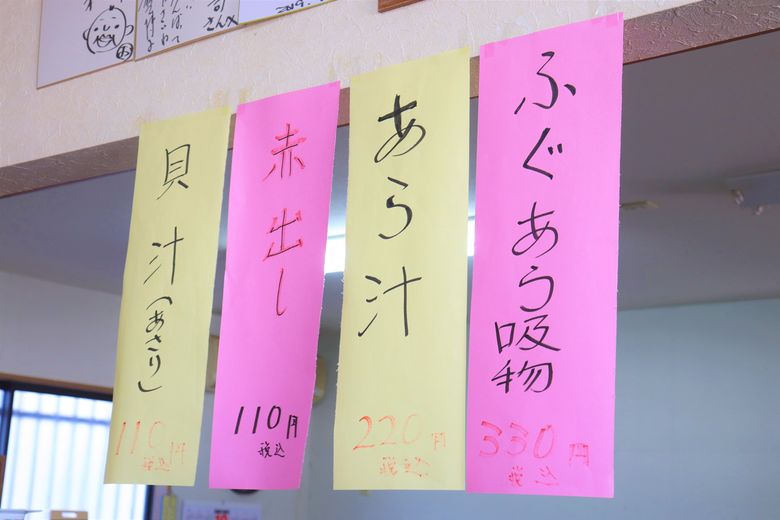 ふぐあら吸物
330円
税込
あら汁
220円
税込
赤出し
110円
税込
貝汁(あさり)
110円
税込